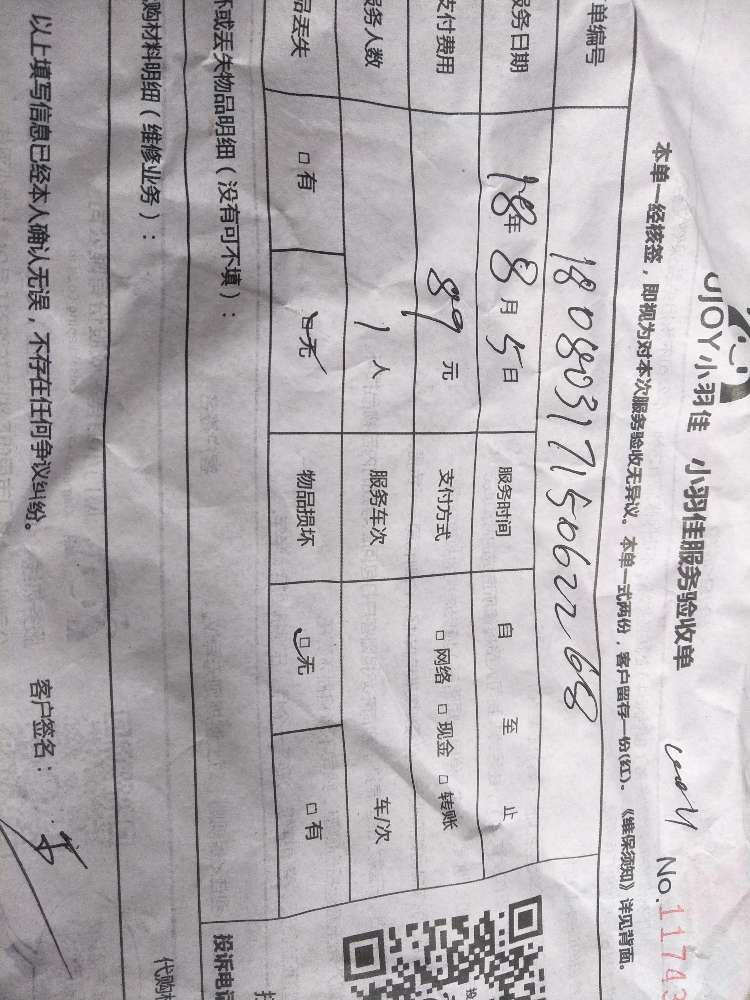 UJOY小羽佳 小羽佳服务验收单
No.1174
本单一经核签，即视为对本次服务验收无异议。本单一式两份，客户留存一份(红)。《维保须知》详见背面。
单编号 180803171506226
服务日期 18年8月5日 服务时间 自 至 止
支付费用 89元 支付方式 □网络 □现金 □转账
服务人数 1人 服务车次 车/次
品丢失 □有 □无 物品损坏 □无 □有
坏或丢失物品明细（没有可不填）：
投诉电话
购材料明细（维修业务）：
代购
以上填写信息已经本人确认无误，不存在任何争议纠纷。 客户签名：